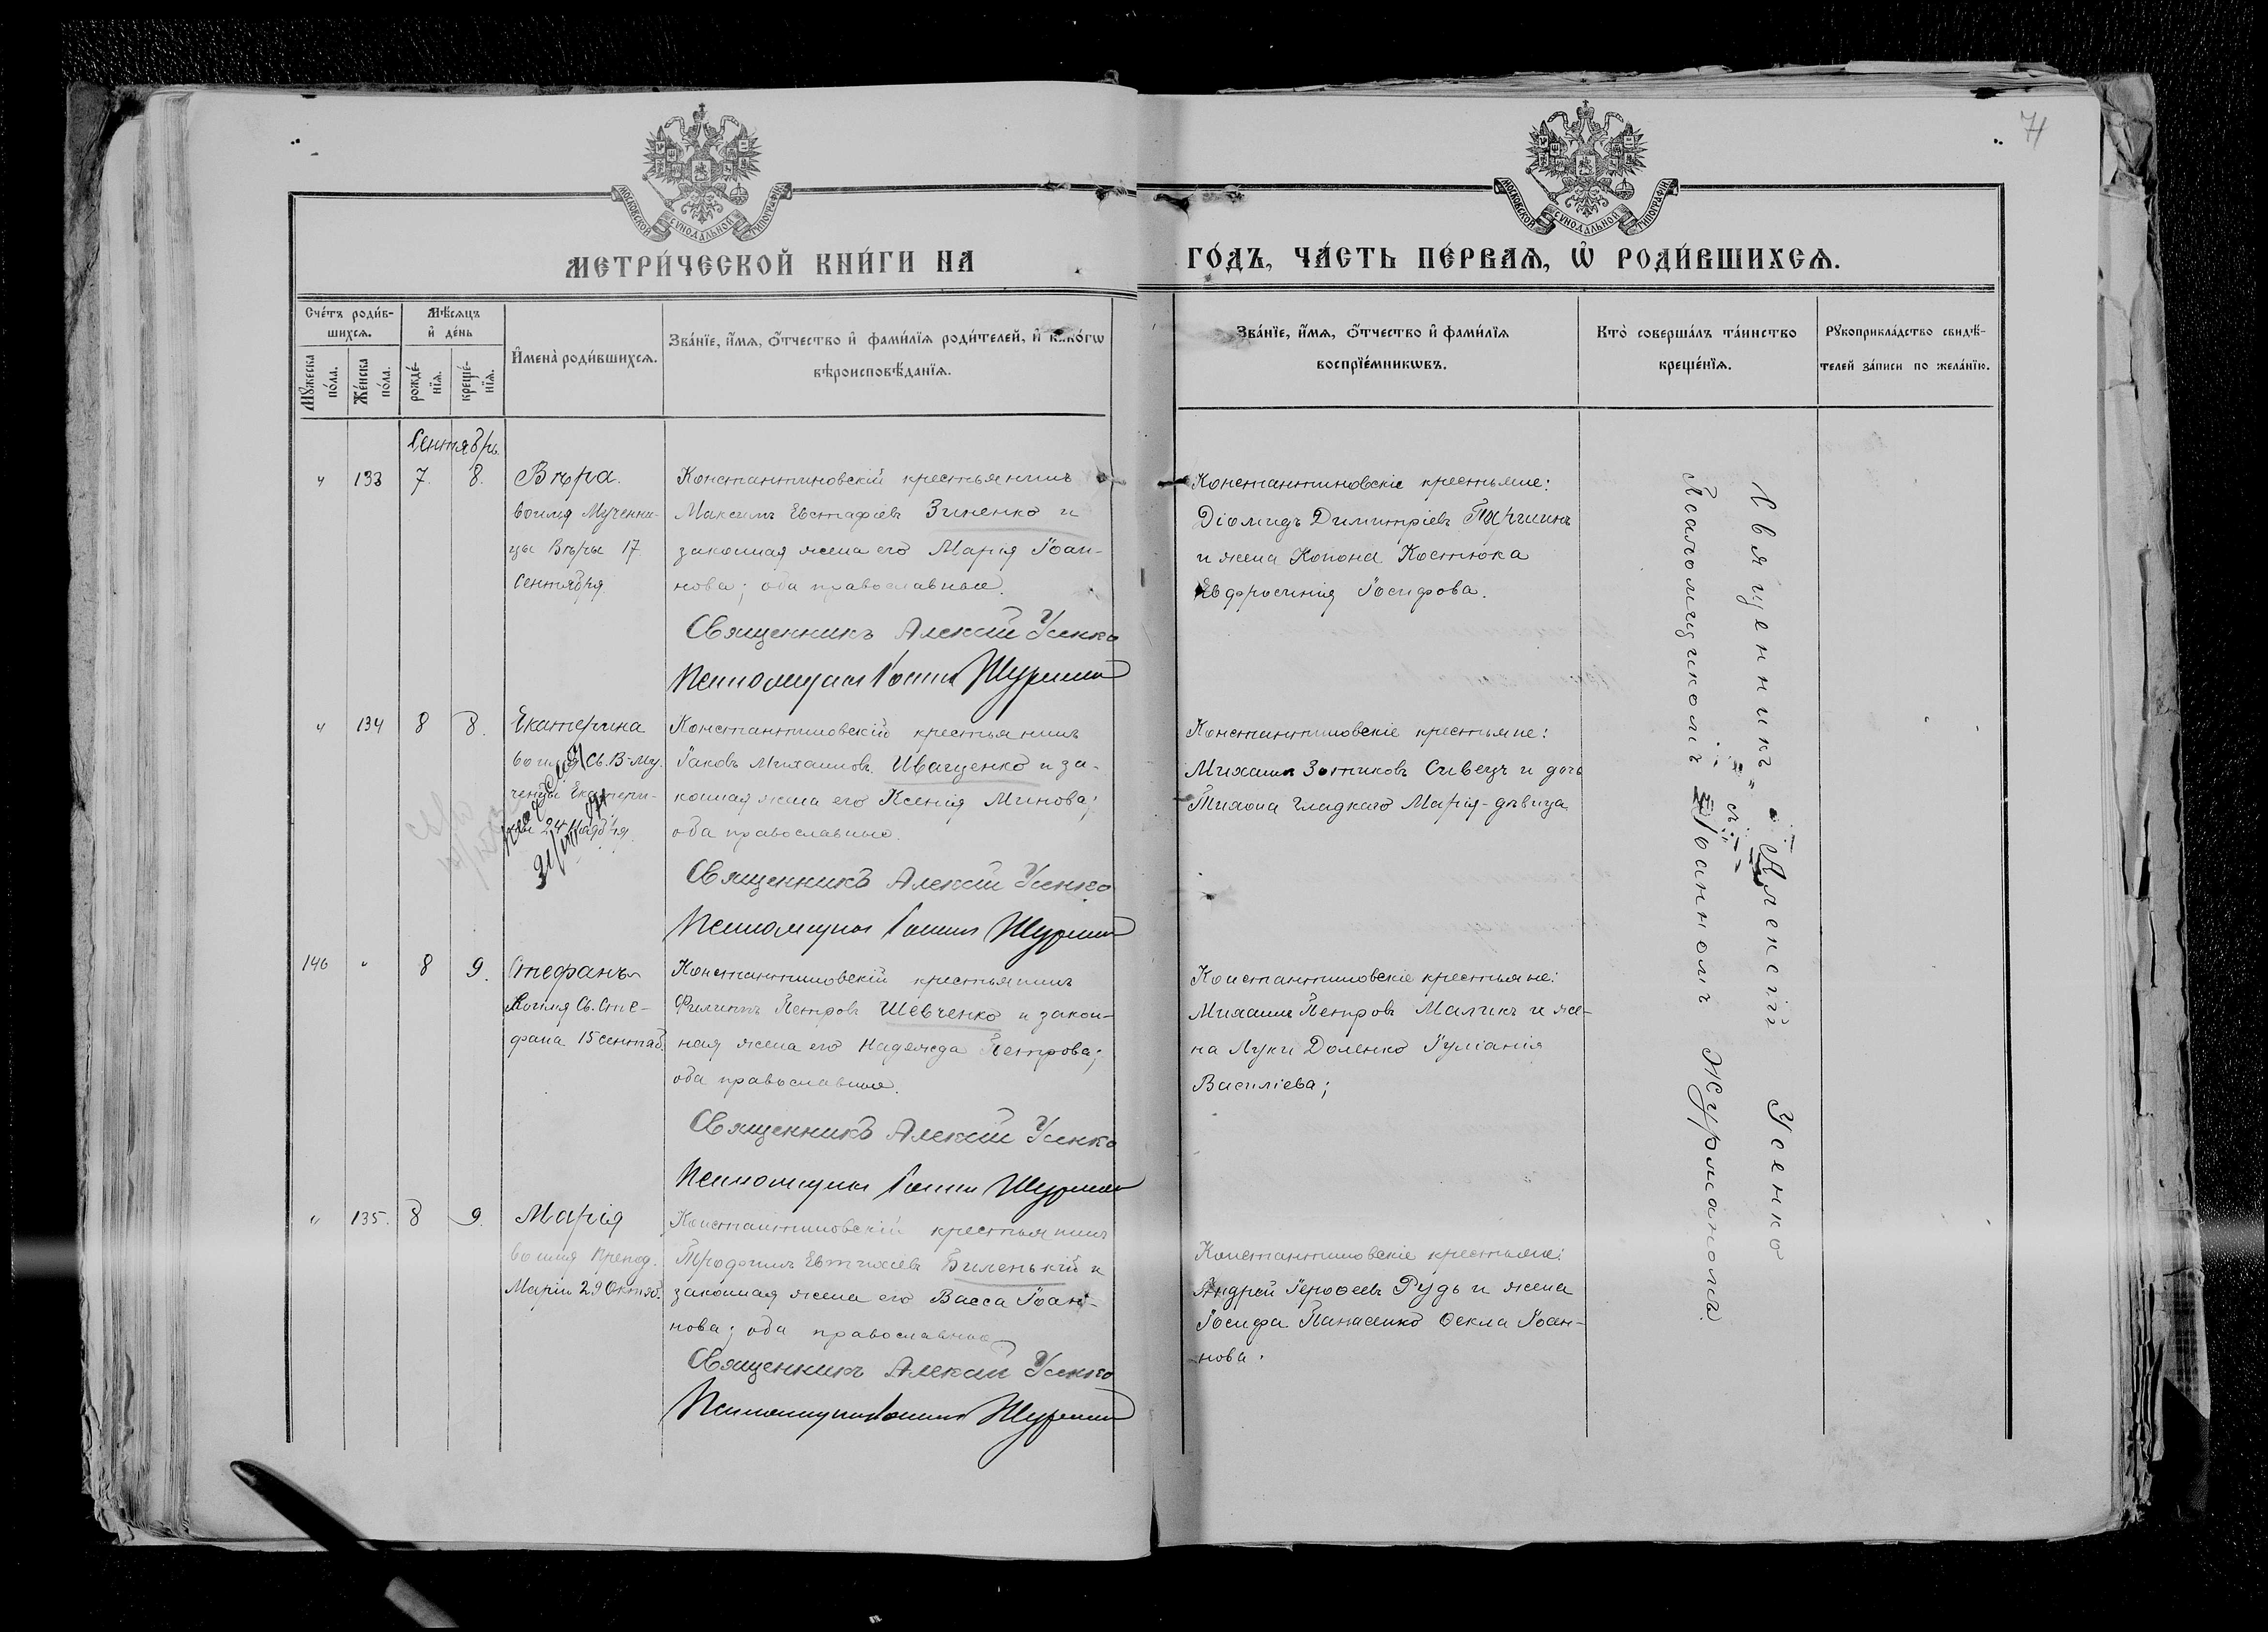 71
МОСКОВСКОЙ СѴНОДАЛЬНОЙ ТИПОГРАФІИ
МОСКОВСКОЙ СѴНОДАЛЬНОЙ ТИПОГРАФІИ
МЕТРИ́ЧЕСКОЙ КНИ́ГИ НА ГО́ДЪ, ЧА́СТЬ ПЕ́РВАѦ, Ѡ҆ РОДИ́ВШИХСѦ.
Сче́тъ роди́в-
шихсѧ.
Мꙋ́жеска по́ла.
Же́нска по́ла.
Мѣ́сѧцъ
и҆ де́нь
рожде́-
нїѧ.
креще́-
нїѧ.
И҆мена̀ роди́вшихсѧ.
Зва́нїе, и҆́мѧ, ѻ҆́тчество и҆ фами́лїѧ роди́телей, и҆ како́гѡ
вѣроисповѣ́данїѧ.
Зва́нїе, и҆́мѧ, ѻ҆́тчество и҆ фами́лїѧ
воспрїе́мникѡвъ.
Кто̀ соверша́лъ та́инство
креще́нїѧ.
Рꙋкоприкла́дство свидѣ́-
телей за́писи по жела́нїю.
Сентябрь.
" 133 7. 8. Вѣра.
во имя Мучени-
цы Вѣры 17
Сентября.
Константиновскій крестьянинъ
Максимъ Евстафіевъ Зиненко и
законная жена его Марія Іоан-
нова; оба православные.
Священникъ Алексій Усенко
Псаломщикъ Іоаннъ Журманъ
Константиновскіе крестьяне:
Діомидъ Димитріевъ
и жена Конона Костюка
Евфросинія Іосифова.
" 134 8 8. Екатерина
во имя Св. В-му-
ченицы Екатери-
ны 24 Ноября.
Константиновскій крестьянинъ
Іаковъ Михаиловъ Иващенко и за-
конная жена его Ксенія Минова;
оба православные.
Священникъ Алексій Усенко
Псаломщикъ Іоаннъ Журманъ
Константиновскіе крестьяне:
Михаилъ Зотиковъ Сивецъ и дочь
Тихона Гладкаго Марія-дѣвица
146 " 8 9. Стефанъ
во имя Св. Сте-
фана 15 сентяб.
Константиновскій крестьянинъ
Филиппъ Петровъ Шевченко и закон-
ная жена его Надежда Петрова;
оба православные.
Священникъ Алексій Усенко
Псаломщикъ Іоаннъ Журманъ
Константиновскіе крестьяне:
Михаилъ Петровъ Маликъ и же-
на Луки Доленко Іуліанія
Василіева;
" 135. 8 9. Марія
во имя Препод.
Маріи 29 Октяб.
Константиновскій крестьянинъ
Трофимъ Евтихіевъ Биленькій и
законная жена его Васса Іоан-
нова; оба православные
Священникъ Алексій Усенко
Псаломщикъ Іоаннъ Журманъ
Константиновскіе крестьяне:
Андрей Іерофеевъ Рудь и жена
Іосифа Панасенко Ѳекла Іоан-
нова.
Священникъ Алексій Усенко
съ
Псаломщикомъ Іоанномъ Журманомъ.